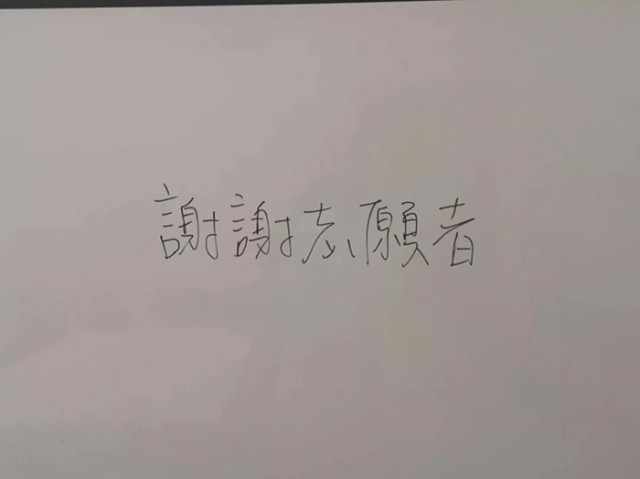 謝謝志願者